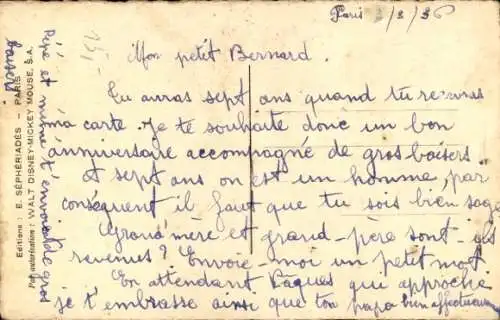 Paris 2/3/36
Mon petit Bernard.
Tu auras sept ans quand tu recevras
ma carte. Je te souhaite donc un bon
anniversaire accompagné de gros baisers
A sept ans on est un homme, par
conséquent il faut que tu sois bien sage
Grand'mère et grand-père sont ils
revenus ? Envoie-moi un petit mot
En attendant Pâques qui approche
je t'embrasse ainsi que ton papa bien affectueusement
Pépé et mimi t'envoient de gros
baisers.
Editions : E. SÉPHÉRIADÈS - PARIS
Par autorisation : WALT DISNEY-MICKEY MOUSE, S.A.